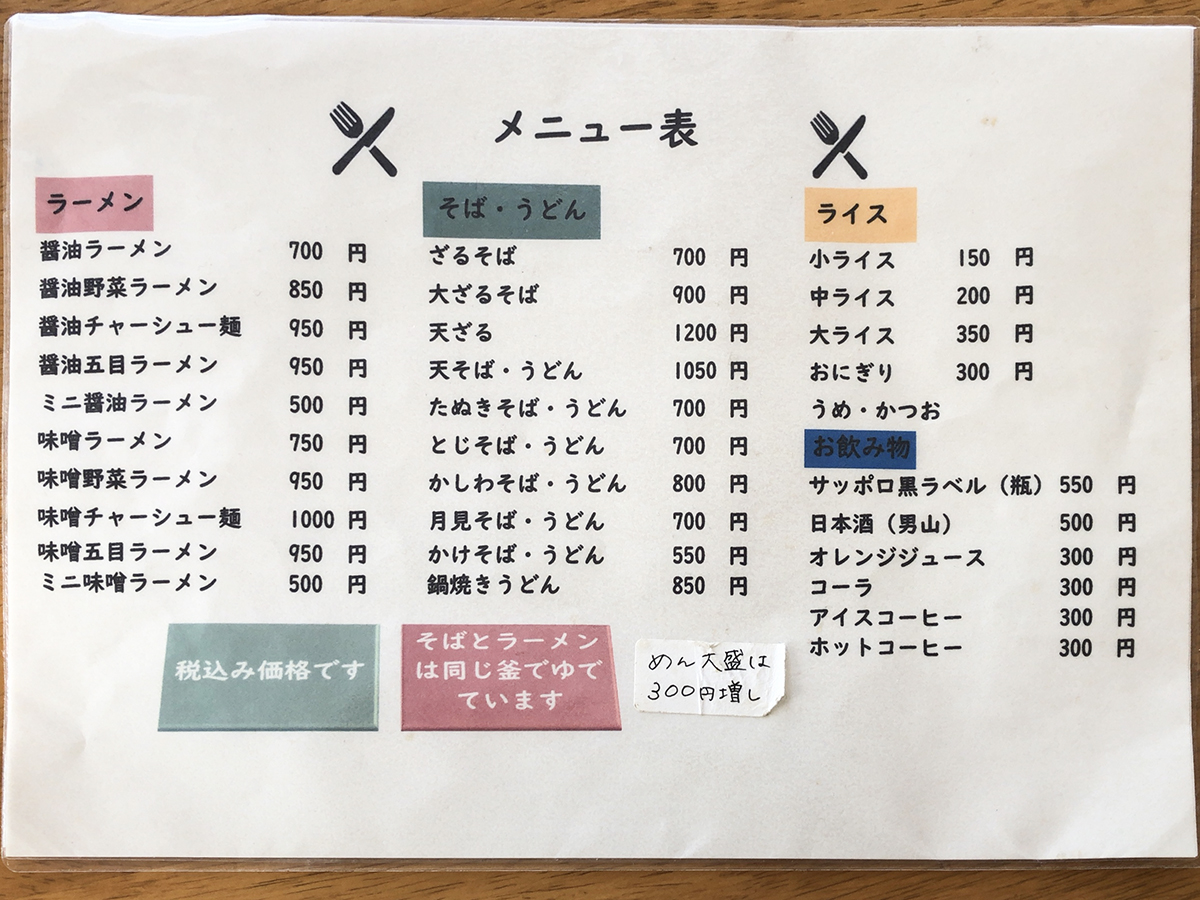 メニュー表
ラーメン
醤油ラーメン 700 円
醤油野菜ラーメン 850 円
醤油チャーシュー麺 950 円
醤油五目ラーメン 950 円
ミニ醤油ラーメン 500 円
味噌ラーメン 750 円
味噌野菜ラーメン 950 円
味噌チャーシュー麺 1000 円
味噌五目ラーメン 950 円
ミニ味噌ラーメン 500 円
そば・うどん
ざるそば 700 円
大ざるそば 900 円
天ざる 1200 円
天そば・うどん 1050 円
たぬきそば・うどん 700 円
とじそば・うどん 700 円
かしわそば・うどん 800 円
月見そば・うどん 700 円
かけそば・うどん 550 円
鍋焼きうどん 850 円
ライス
小ライス 150 円
中ライス 200 円
大ライス 350 円
おにぎり 300 円
うめ・かつお
お飲み物
サッポロ黒ラベル（瓶） 550 円
日本酒（男山） 500 円
オレンジジュース 300 円
コーラ 300 円
アイスコーヒー 300 円
ホットコーヒー 300 円
税込み価格です
そばとラーメン
は同じ釜でゆで
ています
めん大盛は
300円増し